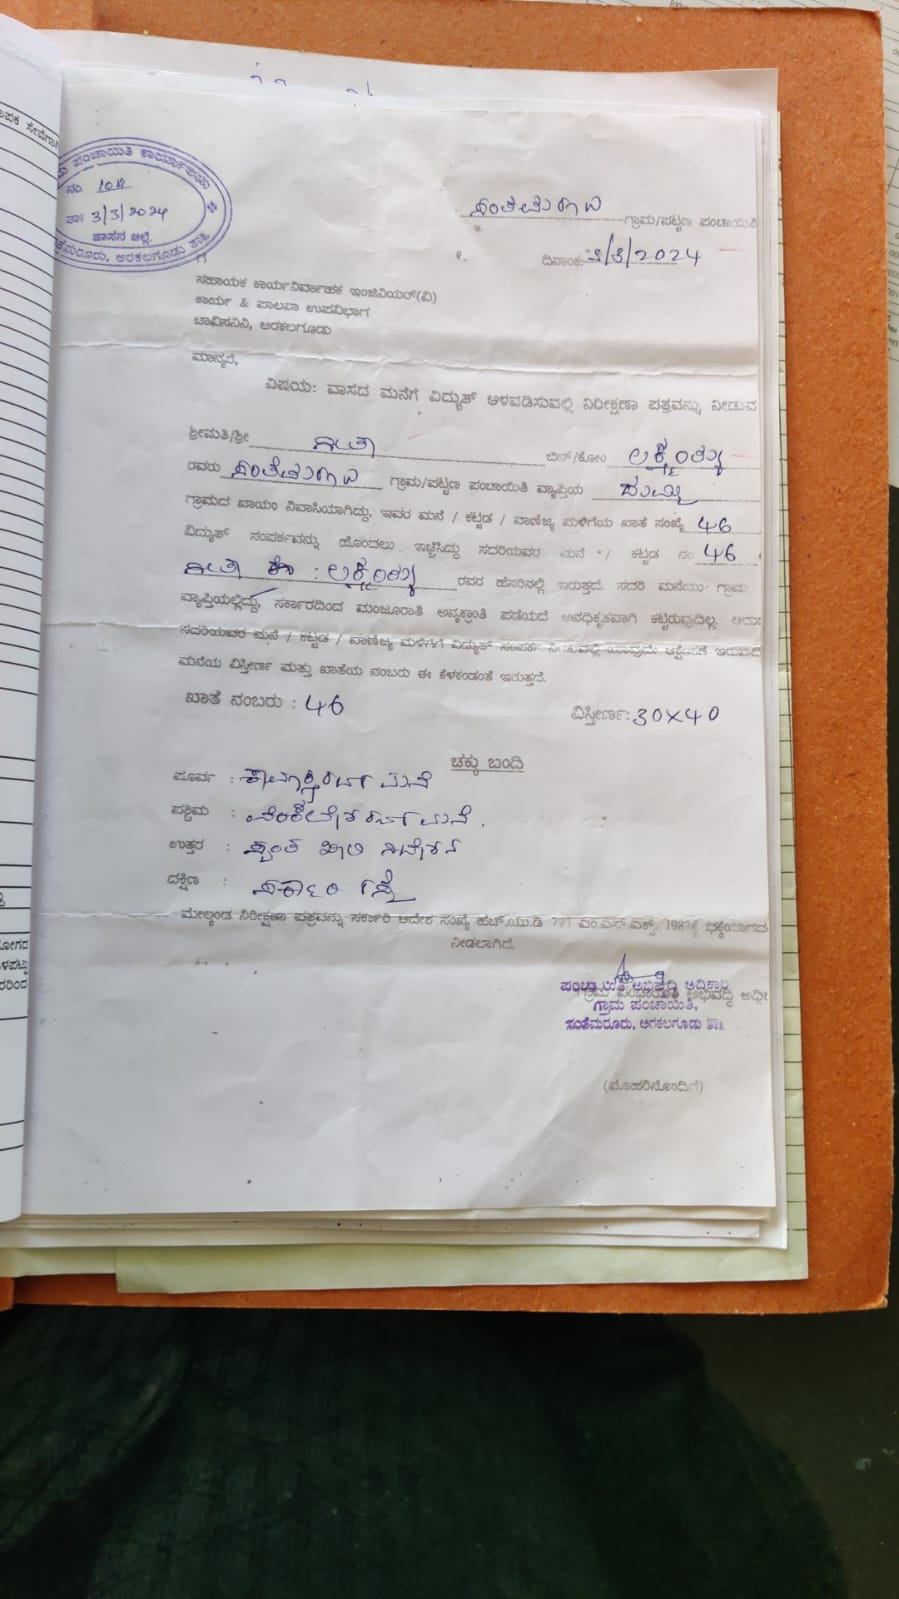 ನಂ 104
ತಾ॥ 3/3/2024
ಹಾಸನ ಜಿಲ್ಲೆ.
ಗ್ರಾಮ/ಪಟ್ಟಣ ಪಂಚಾಯಿತಿ
ದಿನಾಂಕ: 3/3/2024
ಸಹಾಯಕ ಕಾರ್ಯನಿರ್ವಾಹಕ ಇಂಜಿನಿಯರ್(ವಿ)
ಕಾರ್ಯ & ಪಾಲನಾ ಉಪವಿಭಾಗ
ಚಾವಿಸನಿನಿ, ಅರಕಲಗೂಡು
ಮಾನ್ಯರೆ,
ವಿಷಯ: ವಾಸದ ಮನೆಗೆ ವಿದ್ಯುತ್ ಅಳವಡಿಸುವಲ್ಲಿ ನಿರೀಕ್ಷಣಾ ಪತ್ರವನ್ನು ನೀಡುವ
ಶ್ರೀಮತಿ/ಶ್ರೀ ಗೀತಾ ಬಿನ್/ಕೋಂ
ರವರು ಗ್ರಾಮ/ಪಟ್ಟಣ ಪಂಚಾಯಿತಿ ವ್ಯಾಪ್ತಿಯ
ಗ್ರಾಮದ ಖಾಯಂ ನಿವಾಸಿಯಾಗಿದ್ದು, ಇವರ ಮನೆ / ಕಟ್ಟಡ / ವಾಣಿಜ್ಯ ಮಳಿಗೆಯ ಖಾತೆ ಸಂಖ್ಯೆ 46
ವಿದ್ಯುತ್ ಸಂಪರ್ಕವನ್ನು ಹೊಂದಲು ಇಚ್ಛಿಸಿದ್ದು ಸದರಿಯವರ ಮನೆ / ಕಟ್ಟಡ ನಂ 46
ಗೀತಾ ಕೋ : ರವರ ಹೆಸರಿನಲ್ಲಿ ಇರುತ್ತದೆ. ಸದರಿ ಮನೆಯು ಗ್ರಾಮ
ವ್ಯಾಪ್ತಿಯಲ್ಲಿದ್ದು, ಸರ್ಕಾರದಿಂದ ಮಂಜೂರಾತಿ ಅನ್ಯಕ್ರಾಂತಿ ಪಡೆಯದೆ ಅನಧಿಕೃತವಾಗಿ ಕಟ್ಟಿರುವುದಿಲ್ಲ.
ಸದರಿಯವರ ಮನೆ / ಕಟ್ಟಡ / ವಾಣಿಜ್ಯ ಮಳಿಗೆಗೆ ವಿದ್ಯುತ್ ಸಂಪರ್ಕ ನೀಡುವಲ್ಲಿ ಯಾವುದೇ ಆಕ್ಷೇಪಣೆ
ಮನೆಯ ವಿಸ್ತೀರ್ಣ ಮತ್ತು ಖಾತೆಯ ನಂಬರು ಈ ಕೆಳಕಂಡಂತೆ ಇರುತ್ತದೆ.
ಖಾತೆ ನಂಬರು : 46 ವಿಸ್ತೀರ್ಣ: 30×40
ಚಕ್ಕು ಬಂದಿ
ಪೂರ್ವ : ಮನೆ
ಪಶ್ಚಿಮ : ಮನೆ.
ಉತ್ತರ : ಸ್ವಂತ ಖಾಲಿ ನಿವೇಶನ
ದಕ್ಷಿಣ : ಸರ್ಕಾರಿ ರಸ್ತೆ
ಮೇಲ್ಕಂಡ ನಿರೀಕ್ಷಣಾ ಪತ್ರವನ್ನು ಸರ್ಕಾರಿ ಆದೇಶ ಸಂಖ್ಯೆ ಹೆಚ್.ಯು.ಡಿ 777 ಎಂ.ಎನ್.ಎಕ್ಸ್. 1987ಕ್ಕೆ
ನೀಡಲಾಗಿದೆ.
ಪಂಚಾಯಿತಿ ಅಭಿವೃದ್ಧಿ ಅಧಿಕಾರಿ
ಗ್ರಾಮ ಪಂಚಾಯಿತಿ,
ಸಂತೆಮರೂರು, ಅರಕಲಗೂಡು ತಾ॥
(ಮೊಹರಿನೊಂದಿಗೆ)